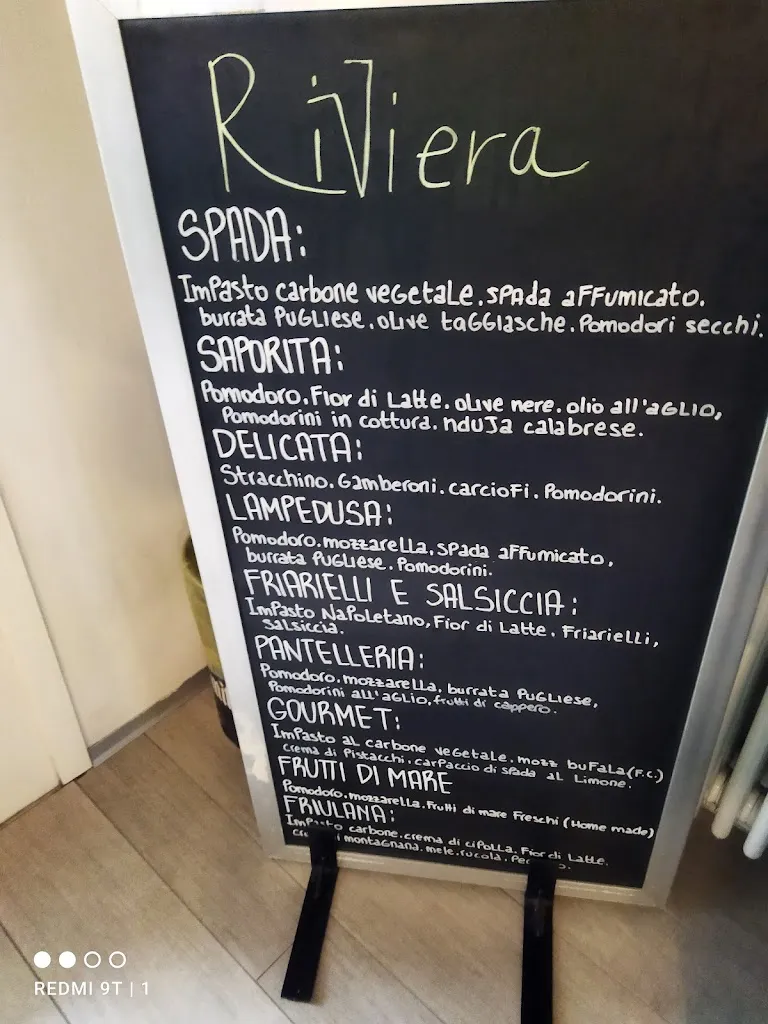 RiViera
SPADA:
Impasto carbone vegetale. spada affumicato.
burrata Pugliese. olive taggiasche. Pomodori secchi.
SAPORITA:
Pomodoro. Fior di Latte. olive nere. olio all'aglio,
Pomodorini in cottura. nduja calabrese.
DELICATA:
Stracchino. Gamberoni. carciofi. Pomodorini.
LAMPEDUSA:
Pomodoro. mozzarella. spada affumicato,
burrata Pugliese. Pomodorini.
FRIARIELLI E SALSICCIA:
Impasto Napoletano, Fior di Latte. Friarielli,
salsiccia.
PANTELLERIA:
Pomodoro. mozzarella, burrata Pugliese,
Pomodorini all'aglio, frutti di cappero.
GOURMET:
Impasto al carbone vegetale. mozz bufala (F.C.)
crema di Pistacchi. carpaccio di spada al Limone.
FRUTTI DI MARE
Pomodoro. mozzarella. Frutti di mare Freschi (Home made)
FRIULANA:
Impasto carbone. crema di cipolla. Fior di Latte.
montagnana. mele. rucola.
REDMI 9T | 1